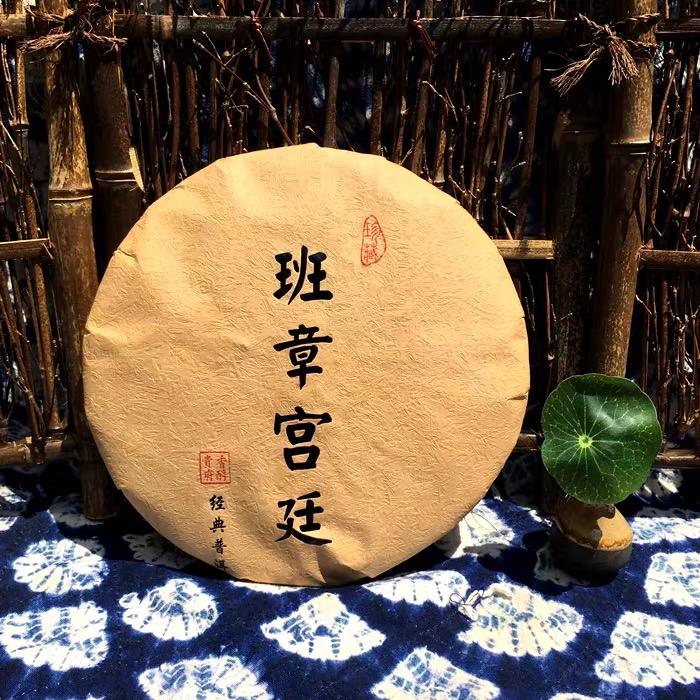 珍藏
班章宫廷
经典普洱